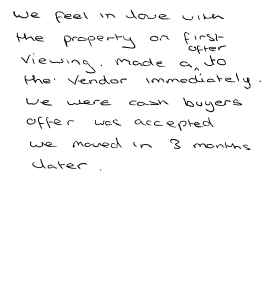 We feel in love with
the property on first
viewing. made a offer to
the Vendor immediately.
we were cash buyers
offer was accepted
we moved in 3 months
later.